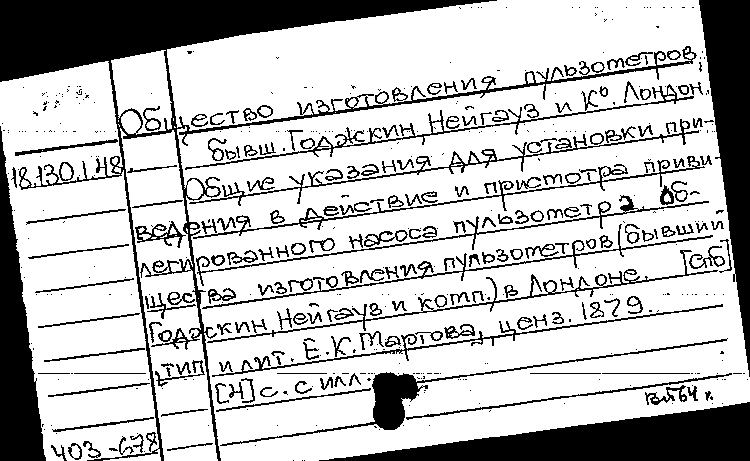 Общество изготовления пульзометров,
бывш. Годжкин, Нейгауз и К°. Лондон.
18.130.1.48
Общие указания для установки, при-
ведения в действие и присмотра приви-
легированного насоса пульзометра Об-
щества изготовления пульзометров (бывший
Годжкин, Нейгауз и комп.) в Лондоне. [Спб]
тип. и лит. Е.К. Мартова, ценз. 1879.
[4] с. с илл.
64 г.
403-678